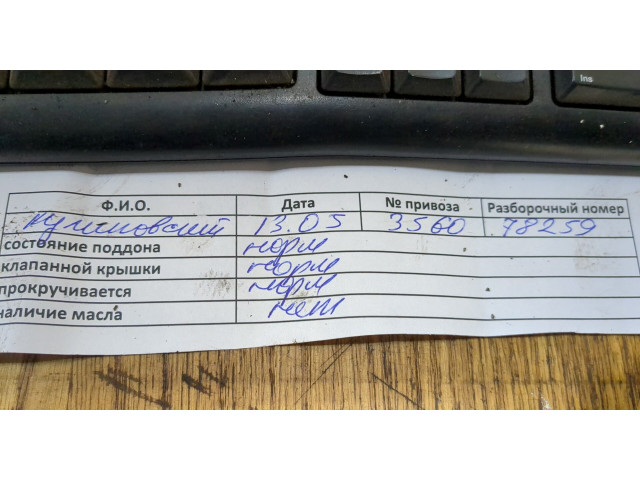 Ins
Ф.И.О. Дата № привоза Разборочный номер
13.05 3560 78259
состояние поддона норм
клапанной крышки норм
прокручивается норм
наличие масла нет